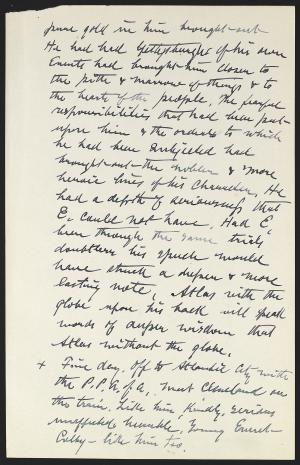 pure gold in him brought out
He had had Gettysburghs of his own
Events had brought him closer to
the pith & marrow of things & to
the hearts of the people, the fearful
responsibilities that had been put
upon him & the ordeals to which
he had been subjected had
brought out the nobler & more
heroic lines of his character. He
had a depth of seriousness that
E. could not have. Had E.
been through the same trials
doubtless his speech would
have struck a deeper & more
lasting note. Atlas with the
globe upon his back will speak
words of deeper wisdom than
Atlas without the globe.
x Fine day. Off to Atlantic City with
the P.P. of A., met Cleveland on
the train. Like him, kindly, serious
unaffected humble, Young
Colby - like him too.